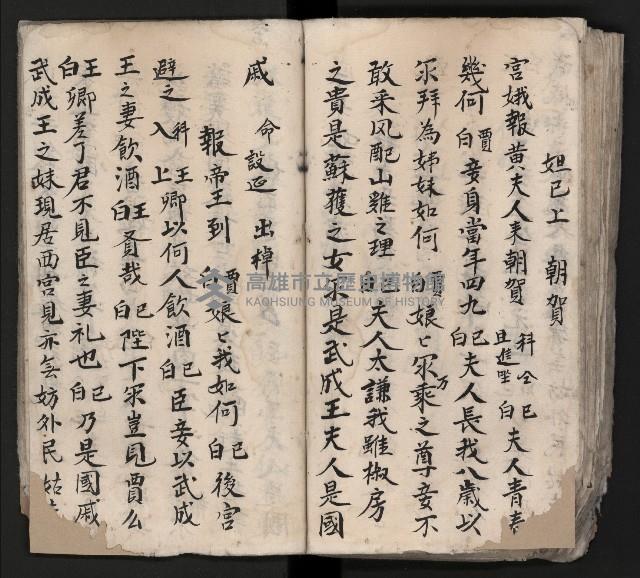 妲己上 朝賀
宮娥報黃夫人來朝賀 科 仝 且進坐 己白 夫人青春
幾何 賈白 妾身當年四九 己白 夫人長我八歲以
尔拜為姊妹如何 賈白 娘〻万乘之尊妾不
敢采風配山雞之理 己白 夫人太謙我雖椒房
之貴是蘇獲之女 是武成王夫人是國
戚 命設延 出棹
報帝王到 賈白 娘〻我如何 己白 後宮
避之 科 入 王上 卿以何人飲酒 己白 臣妾以武成
王之妻飲酒 王白 賢哉 己白 陛下 豈見賈么
王白 卿差了君不見臣之妻礼也 己白 乃是國戚
武成王之妹現居西宮見亦無妨外民姑
高雄市立歷史博物館
KAOHSIUNG MUSEUM OF HISTORY